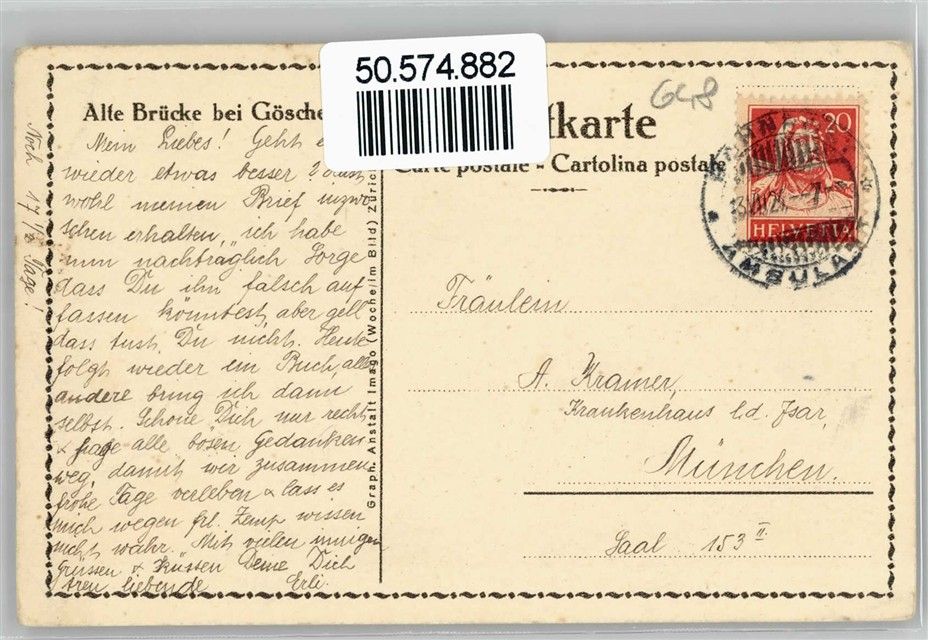 50.574.882
Alte Brücke bei Gösche
tkarte
Carte postale - Cartolina postale
648
20
HELVETIA
AMBULANT
Noch 17 1/2 Tage!
Mein Liebes! Geht e
wieder etwas besser?
wohl meinen Brief inzwi-
schen erhalten, ich habe
nun nachträglich Sorge
dass Du ihn falsch auf
fassen könntest, aber gell
dass tust Du nicht. Heute
folgt wieder ein Buch, alle
andere bring ich dann
selbst. Schone Dich nur recht
& jage alle bösen Gedanken
weg, damit wir zusammen
frohe Tage verleben & lass es
mich wegen Frl. Zemp wissen
nicht wahr. Mit vielen innigen
Grüssen & Küssen Deine Dich
treu liebende Erli.
Graph. Anstalt Imago (Woche im Bild) Züric
Fräulein
A. Kramer,
Krankenhaus l./d. Isar,
München.
Saal 153 II